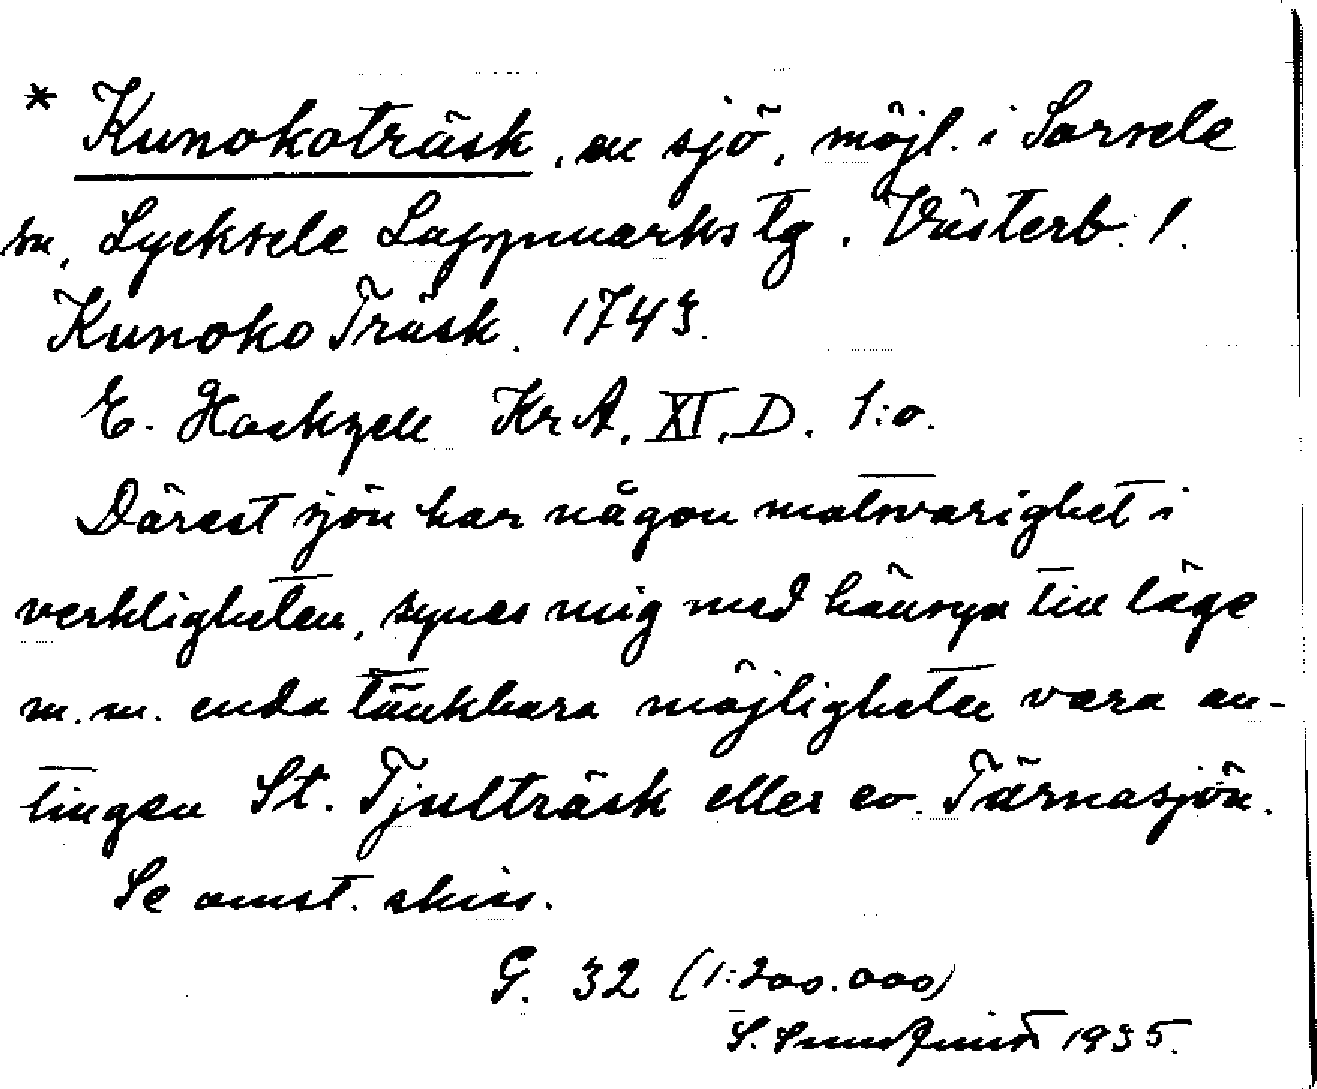 * Kunokoträsk, en sjö, möjl. i Sorsele
sn, Lycksele Lappmarks tg. Västerb. l.
Kunoko Träsk. 1743.
E. Hackzell KrA. XI, D. 1:o.
Därest sjön har någon motsvarighet i
verkligheten, synes mig med hänsyn till läge
m.m. enda tänkbara möjligheten vara an-
tingen St. Tjulträsk eller ev. Tärnasjön.
Se omst. skiss.
G. 32 (1:200.000)
S. Sundquist 1935.